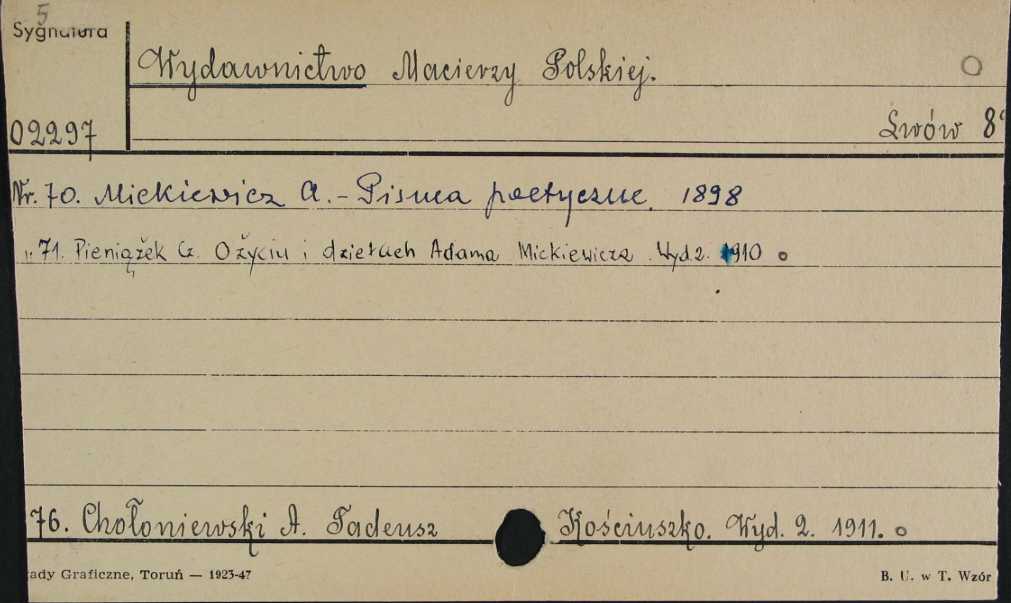 5
Sygnatura
Wydawnictwo Macierzy Polskiej.
02297
Lwów 8°
Nr. 70. Mickiewicz A. - Pisma poetyczne. 1898
71. Pieniążek Cz. O życiu i dziełach Adama Mickiewicza. Wyd. 2. 1910
76. Chołoniewski A. Tadeusz Kościuszko. Wyd. 2. 1911.
ady Graficzne, Toruń — 1923-47
B. U. w T. Wzór